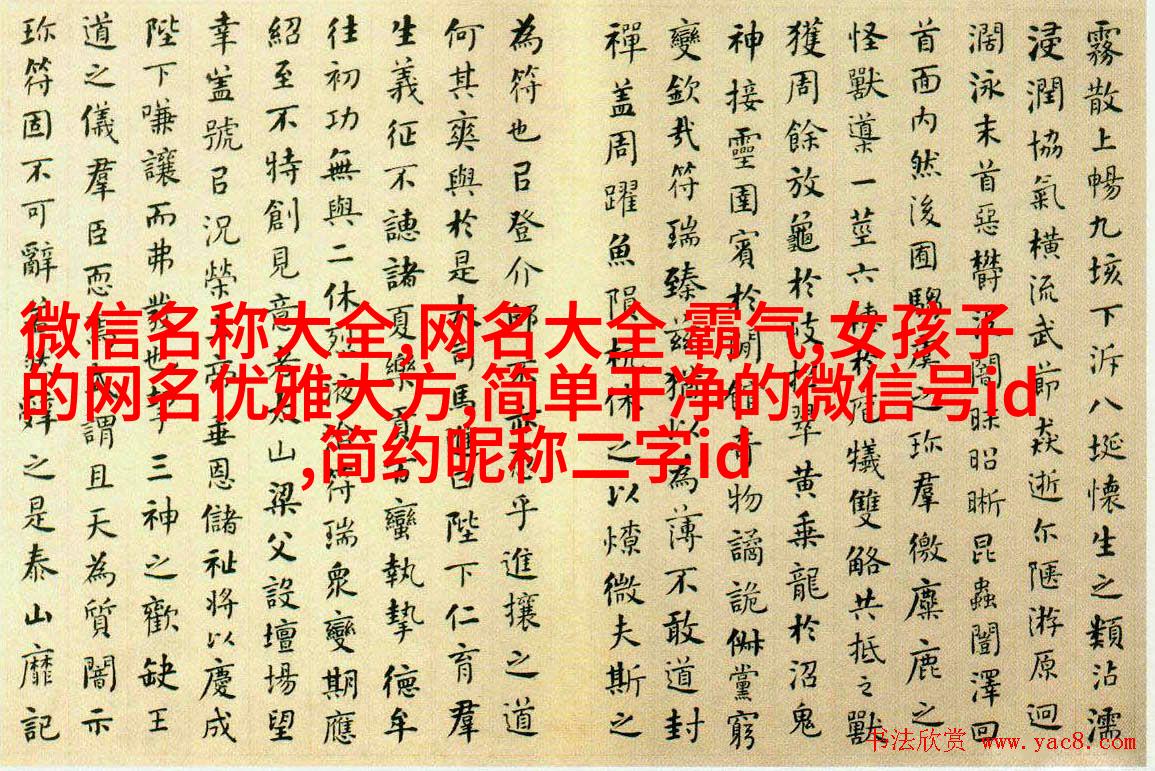 霧散上暢九垓下泝八埏懷生之類沾濡
浸潤協氣橫流武節猋逝尓陿游原迥
濶泳末首惡欝闇昧昭晰昆蟲闓澤回
首面内然後囿騶虞之珍羣徼麋鹿之
怪獸導一莖六穗於庖犧雙觡共抵之獸
獲周餘放龜於岐招翠黃乘龍於沼鬼
神接靈圉賓於閒館奇物譎詭俶黨窮
變欽哉符瑞臻茲猶以為薄不敢道封
禪盖周躍魚隕杭休之以燎微夫斯之
為符也以登介邱不亦恧乎進攘之道
何其爽與於是大司馬進曰陛下仁育羣
生義征不譓諸夏樂貢百蠻執摯德牟
往初功無與二休烈浹洽符瑞衆變期應
紹至不特創見意者泰山梁父設壇場望
幸盖號以況榮上帝垂恩儲祉將以慶成
陛下嗛讓而弗發也挈三神之歡缺王
道之儀羣臣恧焉或謂且天為質闇示
珍符固不可辭若然辭之是泰山靡記
微信名称大全,网名大全 霸气,女孩子
的网名优雅大方,简单干净的微信号id
,简约昵称二字id
书法欣赏 www.yac8.com